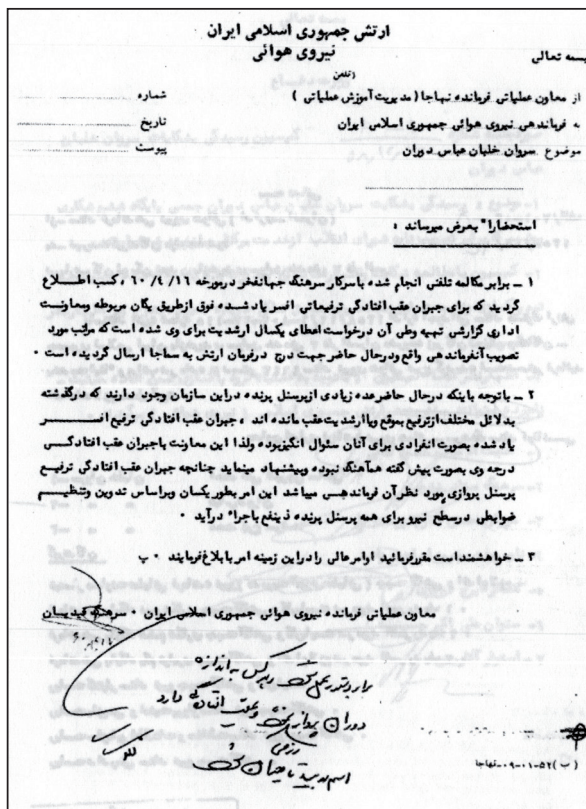 ارتش جمهوری اسلامی ایران
نیروی هوائی
بسمه تعالی
از معاون عملیاتی فرمانده نهاجا ( مدیریت آموزش عملیاتی )
شماره
به فرماندهی نیروی هوائی جمهوری اسلامی ایران
تاریخ
موضوع سروان خلبان عباس دوران
پیوست
استحضارا" بعرض میرساند :
۱ ــ برابر مکالمه تلفنی انجام شده با سرکار سرهنگ جهانفخر در مورخه ۶۰/۴/۱۶ ، کسب اطلاع
گردید که برای جبران عقب افتادگی ترفیعاتی افسر یاد شده فوق ازطریق یگان مربوطه ومعاونت
اداری گزارشی تهیه وطی آن درخواست اعطای یکسال ارشدیت برای وی شده است که مراتب مورد
تصویب آنفرماندهی واقع ودرحال حاضر جهت درج درفرمان ارتش به سماجا ارسال گردیده است ۰
۲ ــ باتوجه باینکه درحال حاضر عده زیادی ازپرسنل پرنده دراین سازمان وجود دارند که درگذشته
بدلائل مختلف ازترفیع بموقع ویا ارشدیت عقب مانده اند ، جبران عقب افتادگی ترفیع افسر
یاد شده بصورت انفرادی برای آنان سئوال انگیز بوده ولذا این معاونت باجبران عقب افتادگی
درجه وی بصورت پیش گفته هم‌آهنگ نبوده وپیشنهاد مینماید چنانچه جبران عقب افتادگی ترفیع
پرسنل پروازی مورد نظر آن فرماندهی میباشد این امر بطور یکسان وبراساس تدوین وتنظیم
ضوابطی درسطح نیرو برای همه پرسنل پرنده ذینفع باجرا" درآید ۰
۳ ــ خواهشمنداست مقررفرمائید اوامر عالی را دراین زمینه امر بابلاغ فرمایند ۰ ب
معاون عملیاتی فرمانده نیروی هوائی جمهوری اسلامی ایران ۰ سرهنگ
دوران
( ب ) ۵۲-۰۱-۰۹-نهاجا